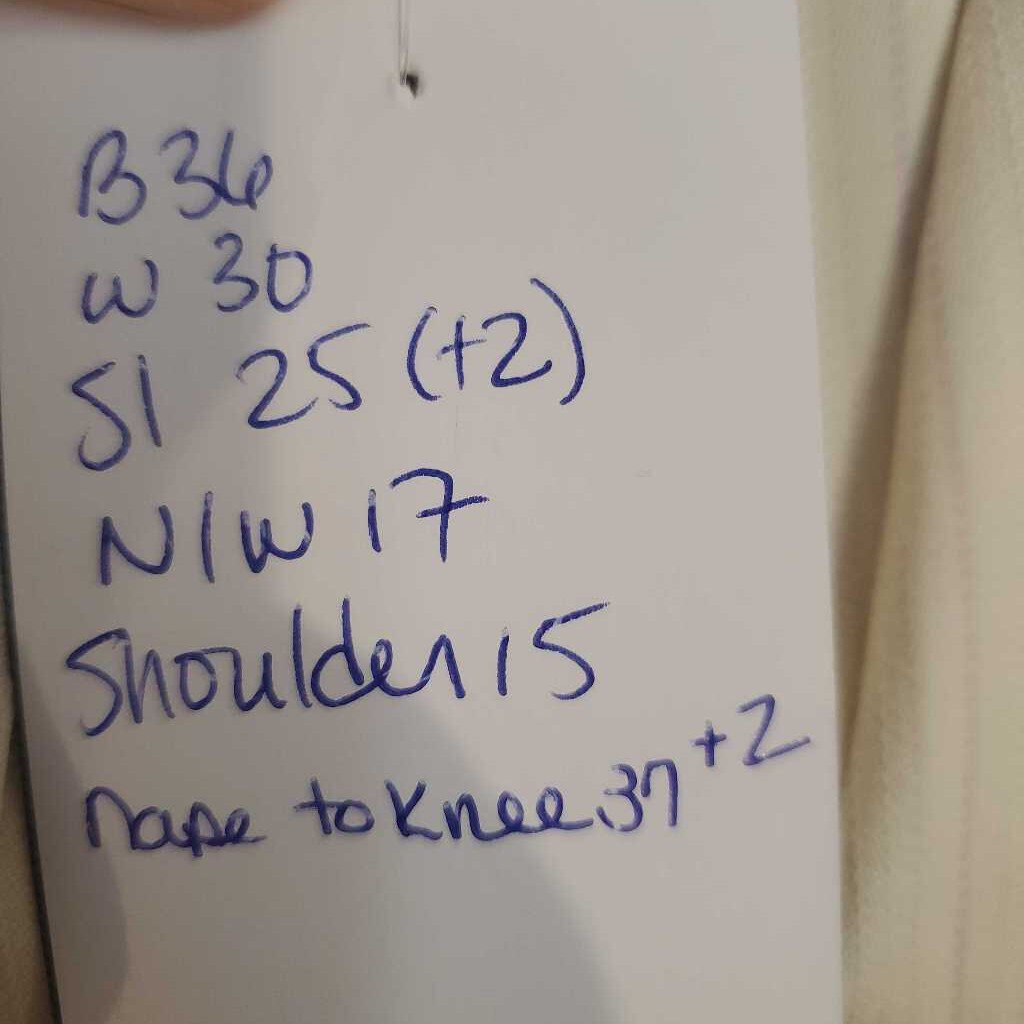 B 36
W 30
S1 25 (+2)
N/W 17
Shoulder 15
nape to Knee 37 +2